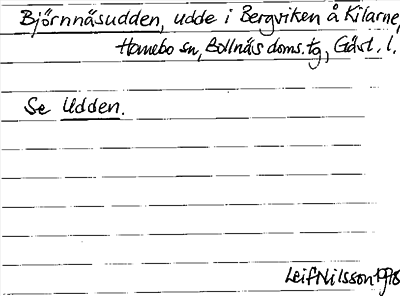 Björnnäsudden, udde i Bergviken å Kilarne,
Hamebo sn, Bollnäs doms.tg, Gävl. l.
Se Udden.
Leif Nilsson 1978